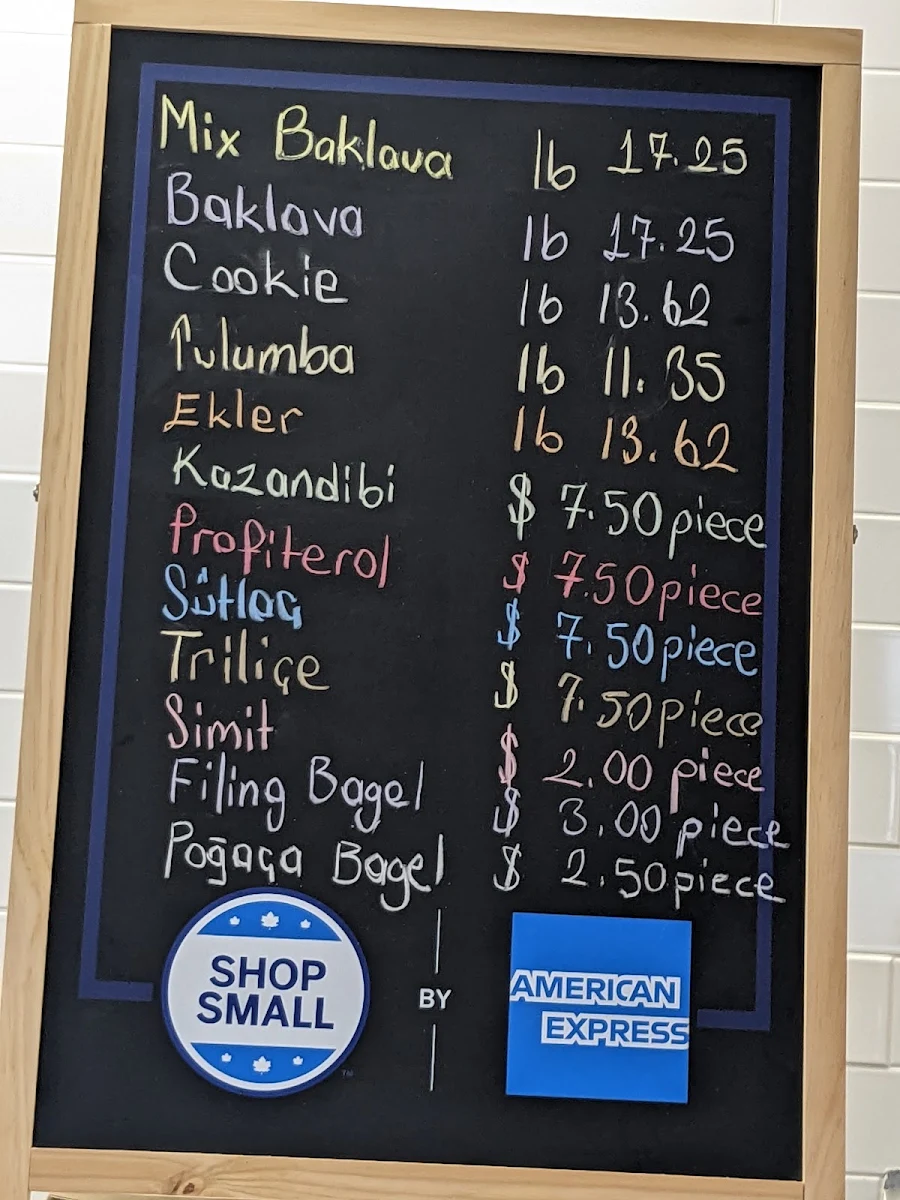 Mix Baklava lb 17.25
Baklava lb 17.25
Cookie lb 13.62
Tulumba lb 11.35
Ekler lb 13.62
Kazandibi $ 7.50 piece
Profiterol $ 7.50 piece
Sütlaç $ 7.50 piece
Triliçe $ 7.50 piece
Simit $ 2.00 piece
Filing Bagel $ 3.00 piece
Poğaça Bagel $ 2.50 piece
SHOP
SMALL
TM
BY
AMERICAN
EXPRESS